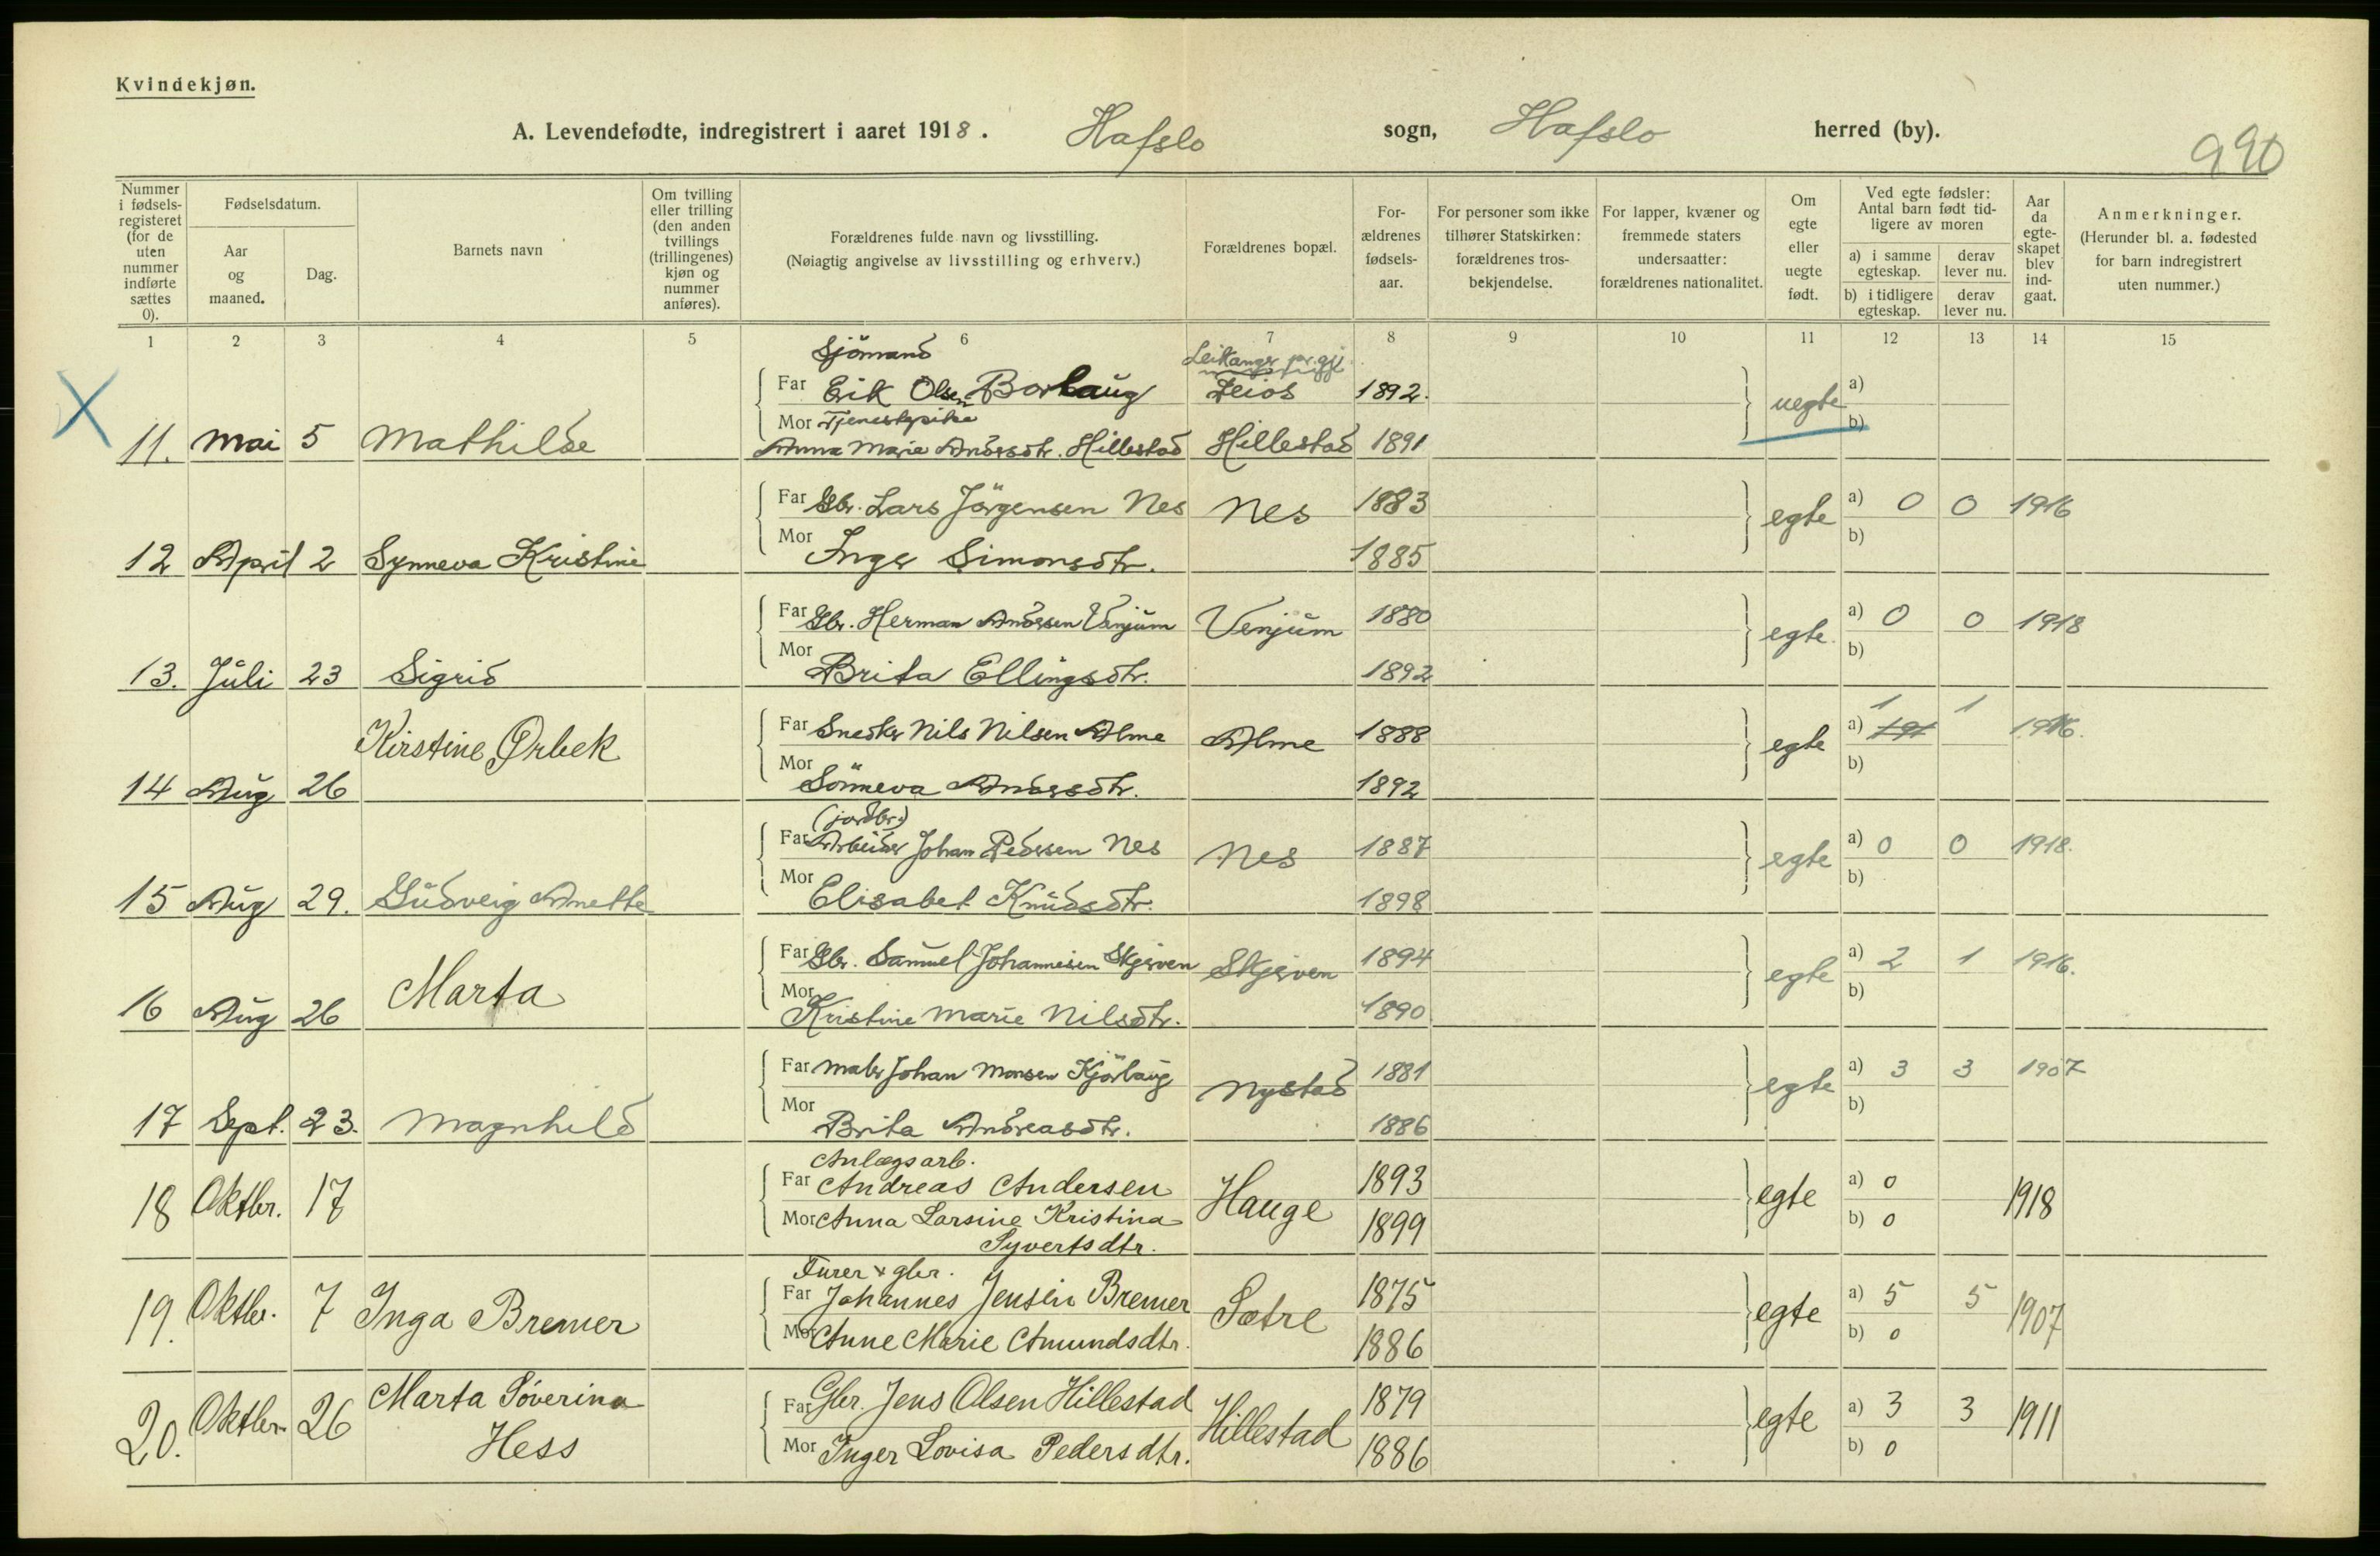 Kvindekjøn.
A. Levendefødte, indregistrert i aaret 1918. Hafslo sogn, Hafslo herred (by).
990
Nummer i fødsels-registeret (for de uten nummer indførte sættes 0).
Fødselsdatum.
Aar og maaned.
Dag.
Barnets navn
Om tvilling eller trilling (den anden tvillings (trillingenes) kjøn og nummer anføres).
Forældrenes fulde navn og livsstilling.
(Nøiagtig angivelse av livsstilling og erhverv.)
Forældrenes bopæl.
For-ældrenes fødsels-aar.
For personer som ikke tilhører Statskirken: forældrenes tros-bekjendelse.
For lapper, kvæner og fremmede staters undersaatter: forældrenes nationalitet.
Om egte eller uegte født.
Ved egte fødsler: Antal barn født tid-ligere av moren
a) i samme egteskap.
derav lever nu.
b) i tidligere egteskap.
derav lever nu.
Aar da egte-skapet blev ind-gaat.
Anmerkninger.
(Herunder bl. a. fødested for barn indregistrert uten nummer.)
1 2 3 4 5 6 7 8 9 10 11 12 13 14 15
Sjömand Leikanger pr.gj.
Far Erik Olsen Borlaug 1892. a)
X 11. Mai 5 Mathilde uegte
Mor Tjenestepike b)
Anna Marie Andersdtr. Hillestad Hillestad 1891
Far Gbr. Lars Jörgensen Nes Nes 1883 egte a) 0 0 1916
12 April 2 Synneva Kristine
Mor Inger Simonsdtr. 1885 b)
Far Gbr. Herman Andersen Venjum Venjum 1880 egte. a) 0 0 1918
13. Juli 23 Sigrid
Mor Brita Ellingsdtr. 1892 b)
Kirstine Ørbek
Far Snedker Nils Nilsen Alme Alme 1888 egte a) 1 1 1916.
14 Aug 26
Mor Sönneva Andersdtr. 1892 b)
(jordbr.)
Far Arbeider Johan Pedersen Nes Nes 1887 egte a) 0 0 1918.
15 Aug 29. Gudveig Anette
Mor Elisabet Knudsdtr. 1898 b)
Far Gbr. Samuel Johannesen Skjerven Skjerven 1894 egte a) 2 1 1916.
16 Aug 26 Marta
Mor Kristine Marie Nilsdtr. 1890 b)
Far Maler Johan Monsen Kjörlaug Nystad 1881 egte a) 3 3 1907
17 Sept. 23. Magnhild
Mor Brita Andreasdtr. 1886 b)
Anlægsarb.
Far Andreas Andersen Hauge 1893 egte a) 0 1918
18 Oktbr. 17
Mor Anna Larsine Kristina 1899 b) 0
Syvertsdtr.
Furer + gbr.
Far Johannes Jensen Bremer Sætre 1875 egte a) 5 5 1907
19. Oktbr. 7 Inga Bremer
Mor Anne Marie Amundsdtr. 1886 b) 0
Marta Söverina
Far Gbr. Jens Olsen Hillestad Hillestad 1879 egte a) 3 3 1911
20. Oktbr. 26 Hess
Mor Inger Lovisa Pedersdtr. 1886 b) 0